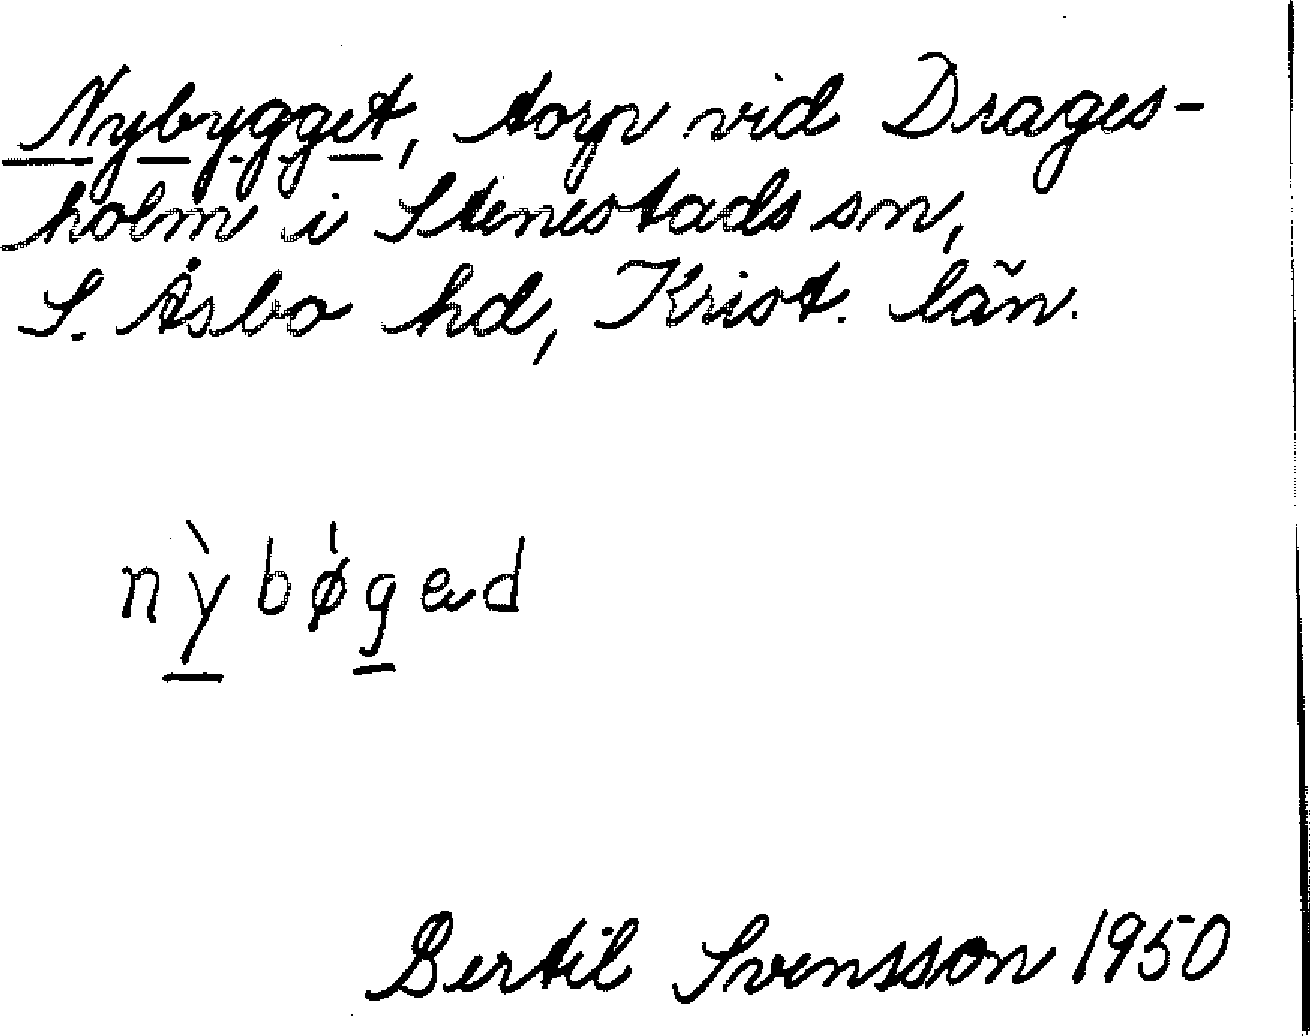 Nybygget, torp vid Drages-
holm i Stenestads sn,
S. Åsbo hd, Krist. län.
nỳbø̍gad
Bertil Svensson 1950